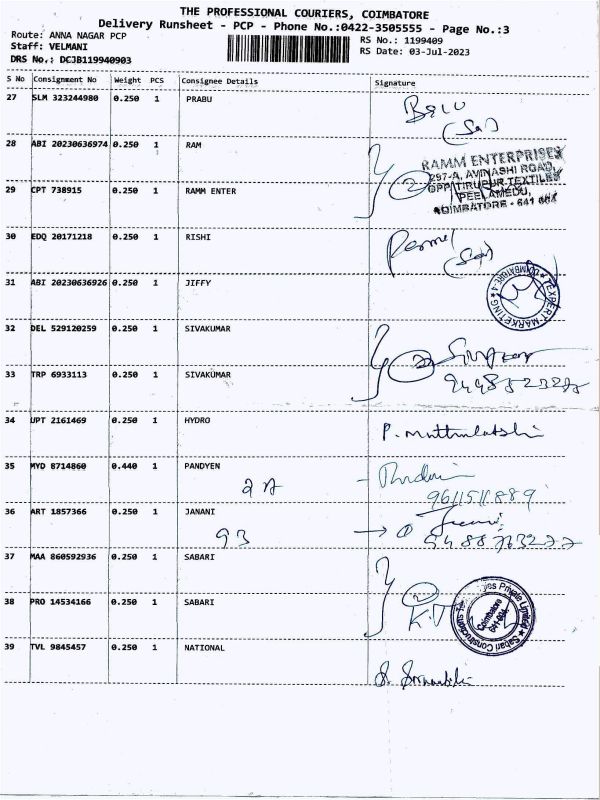 THE PROFESSIONAL COURIERS, COIMBATORE
Delivery Runsheet - PCP - Phone No.:0422-3505555 - Page No.:3
Route: ANNA NAGAR PCP
Staff: VELMANI
DRS No.: DCJB119940903
RS No.: 1199409
RS Date: 03-Jul-2023
S No Consignment No Weight PCS Consignee Details Signature
27 SLM 323244980 0.250 1 PRABU
28 ABI 20230636974 0.250 1 RAM
RAMM ENTERPRISES
297-A, AVINASHI ROAD,
OPP. TIRUPUR TEXTILES
PEELAMEDU,
COIMBATORE - 641 004
29 CPT 738915 0.250 1 RAMM ENTER
30 EDQ 20171218 0.250 1 RISHI
31 ABI 20230636926 0.250 1 JIFFY
32 DEL 529120259 0.250 1 SIVAKUMAR
33 TRP 6933113 0.250 1 SIVAKUMAR
34 UPT 2161469 0.250 1 HYDRO
P. Muthulakshi
35 MYD 8714860 0.440 1 PANDYEN
9611511889
36 ART 1857366 0.250 1 JANANI
93
37 MAA 860592936 0.250 1 SABARI
38 PRO 14534166 0.250 1 SABARI
K.V
39 TVL 9845457 0.250 1 NATIONAL